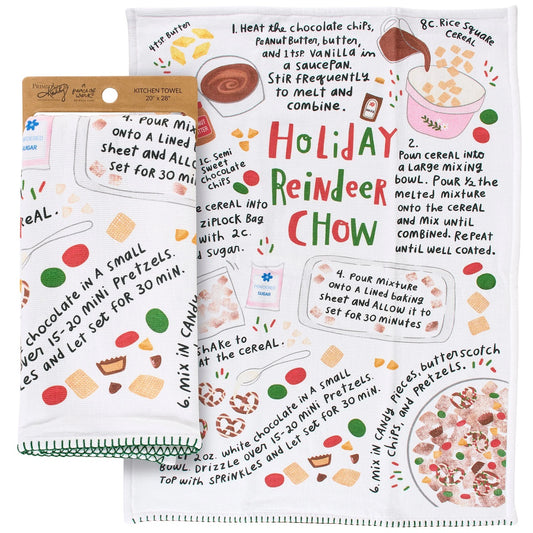 4 TSP. Butter
1. Heat the chocolate chips,
Peanut Butter, butter,
and 1 tsp. Vanilla in
a saucepan.
Stir Frequently
to melt and
combine.
8c. Rice Square
Cereal
Holiday
Reindeer
Chow
2.
Pour cereal into
a large mixing
bowl. Pour ½ the
melted mixture
onto the cereal
and Mix until
combined. Repeat
until well coated.
1c. Semi
Sweet
Chocolate
Chips
e cereal into
ziplock Bag
with 2c.
d sugar.
SUGAR
4. Pour Mixture
onto a lined baking
sheet and Allow it to
set for 30 minutes
shake to
at the cereal.
t 2 oz. white chocolate in a small
bowl. Drizzle over 15-20 Mini Pretzels.
Top with sprinkles and Let Set for 30 min.
6. Mix in candy pieces, butterscotch
chips, and pretzels.
Primitives
Kathy
KITCHEN TOWEL
20" x 28"
SUGAR
4. Pour Mix
onto a lined
sheet and Allow
set for 30 min
eal.
chocolate in a small
over 15-20 Mini Pretzels.
les and Let Set for 30 min.
6. Mix in candy